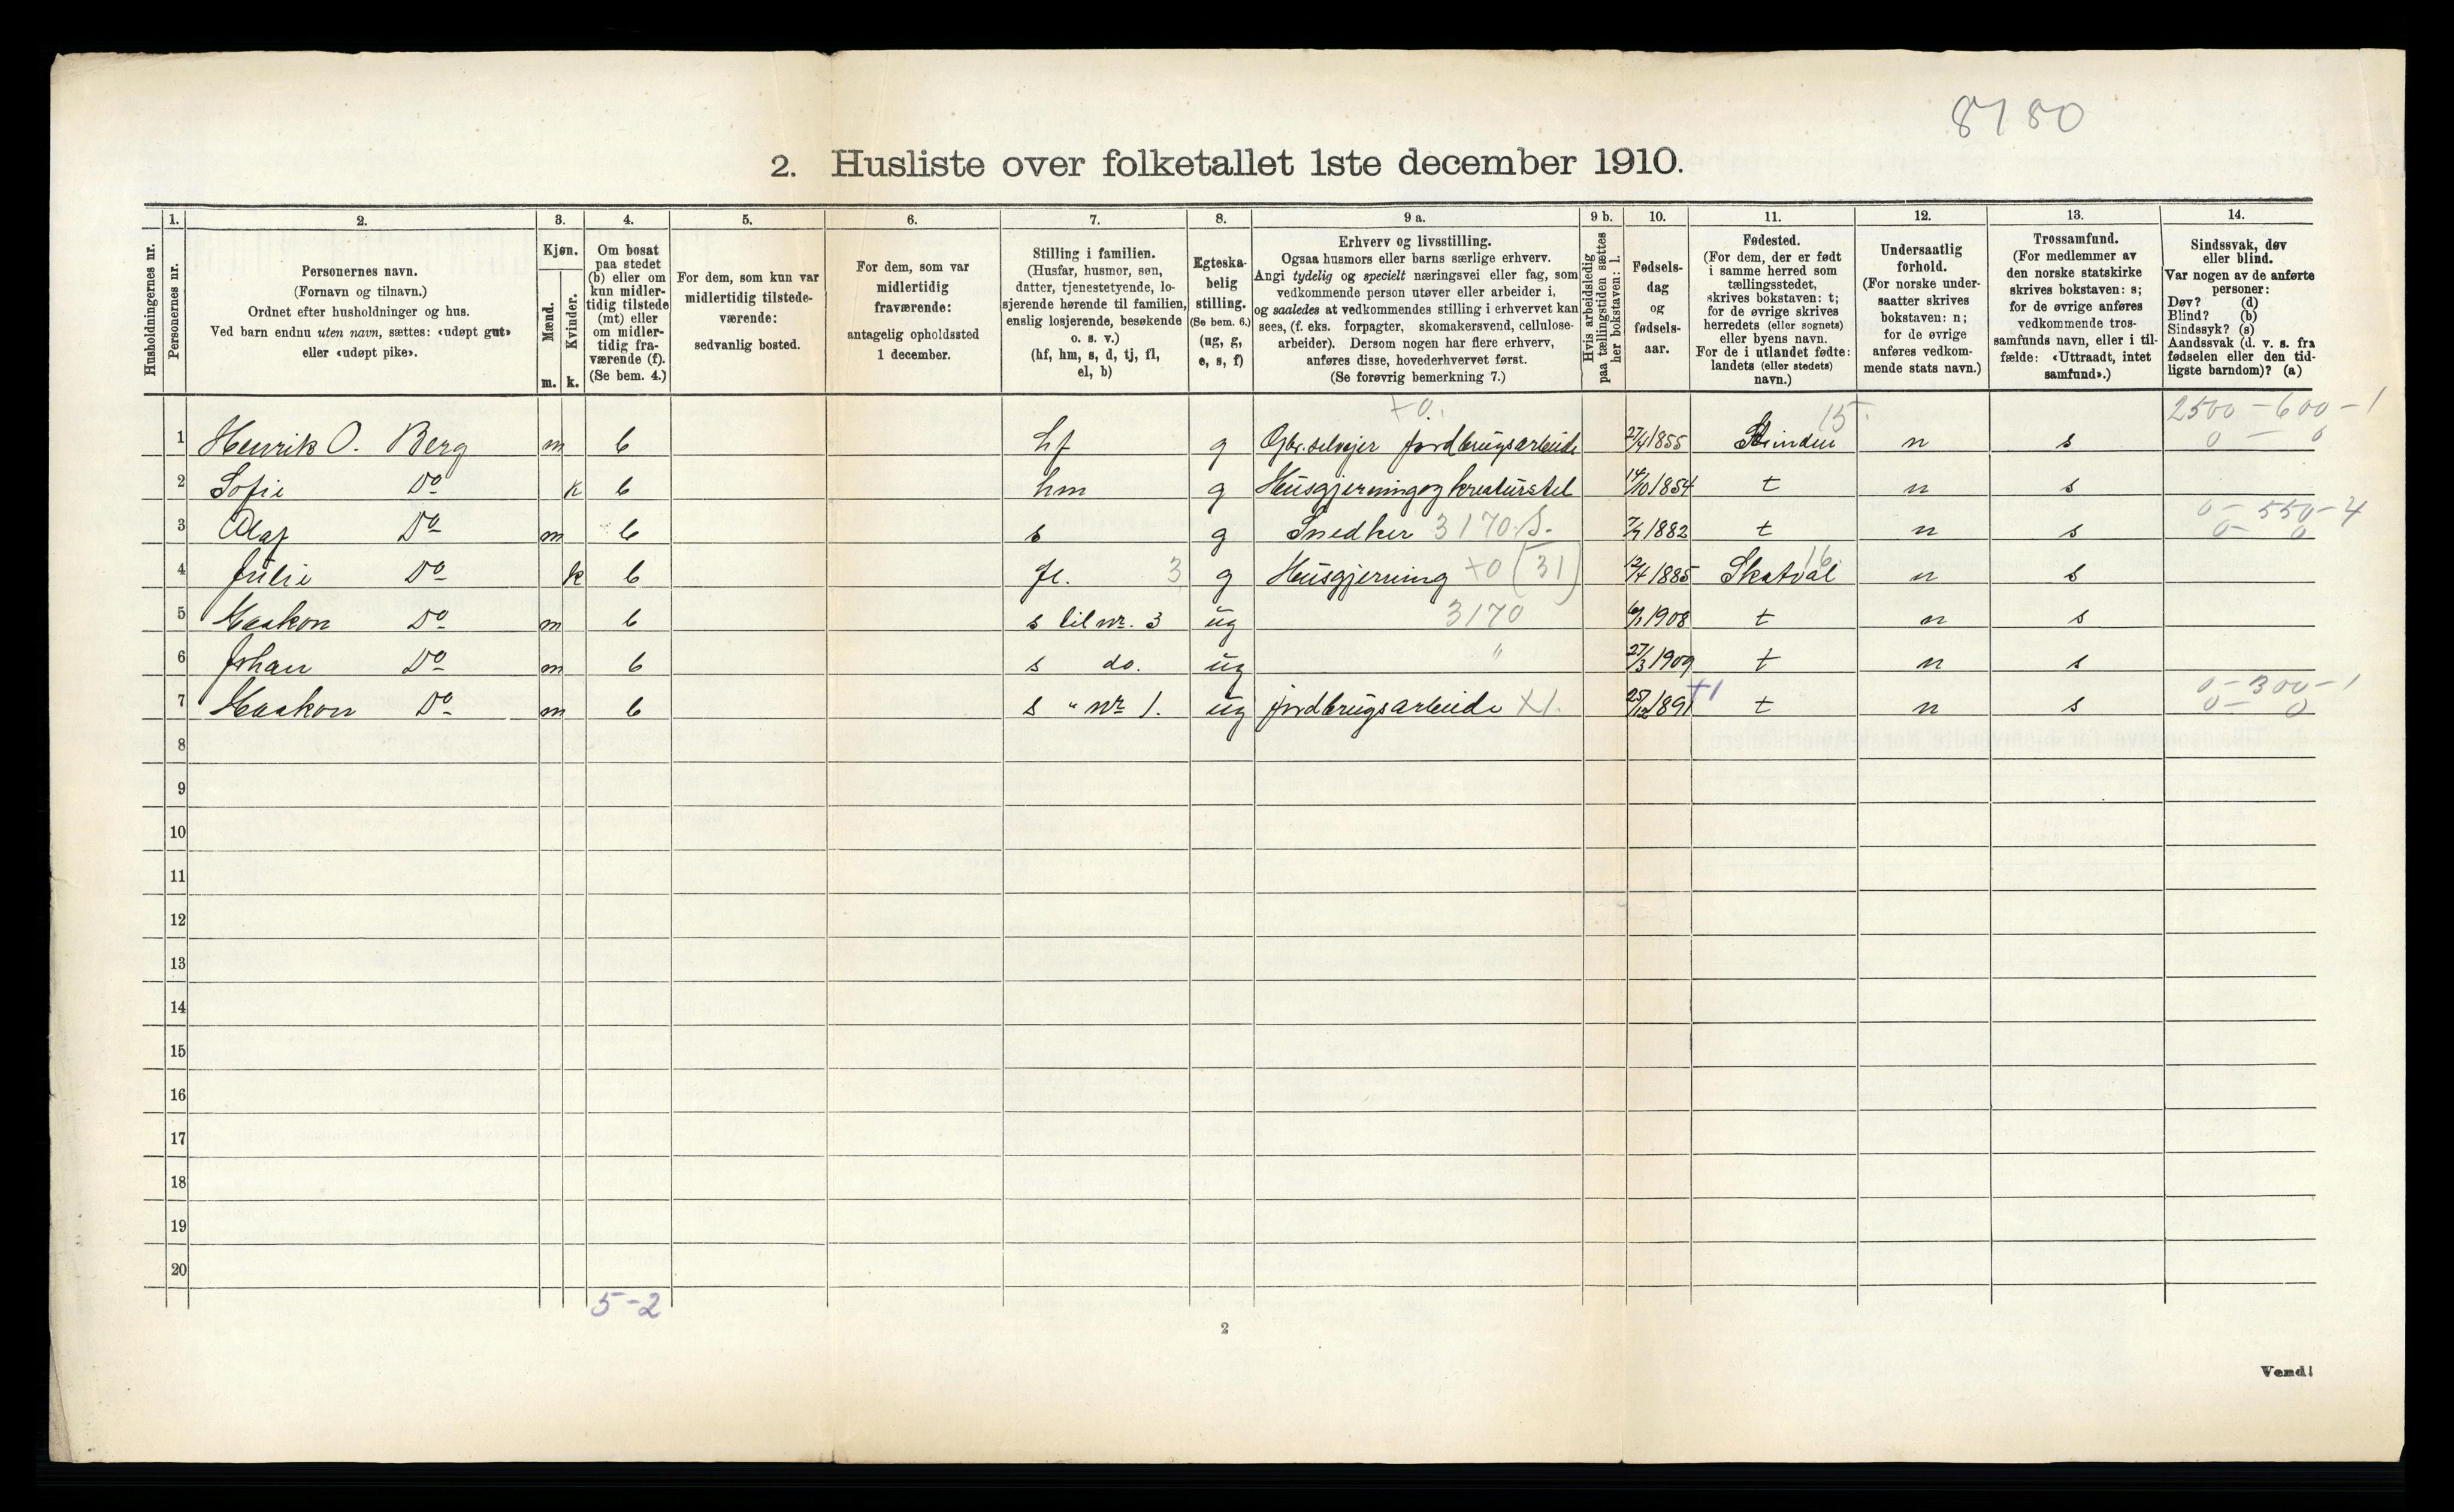 8180
2. Husliste over folketallet 1ste december 1910.
Husholdningernes nr.
1. Personernes nr.
2. Personernes navn.
(Fornavn og tilnavn.)
Ordnet efter husholdninger og hus.
Ved barn endnu uten navn, sættes: «udøpt gut»
eller «udøpt pike».
3. Kjøn.
Mænd. Kvinder.
m. k.
4. Om bosat
paa stedet
(b) eller om
kun midler-
tidig tilstede
(mt) eller
om midler-
tidig fra-
værende (f).
(Se bem. 4.)
5. For dem, som kun var
midlertidig tilstede-
værende:
sedvanlig bosted.
6. For dem, som var
midlertidig
fraværende:
antagelig opholdssted
1 december.
7. Stilling i familien.
(Husfar, husmor, søn,
datter, tjenestetyende, lo-
sjerende hørende til familien,
enslig losjerende, besøkende
o. s. v.)
(hf, hm, s, d, tj, fl,
el, b)
8. Egteska-
belig
stilling.
(Se bem. 6.)
(ug, g,
e, s, f)
9 a. Erhverv og livsstilling.
Ogsaa husmors eller barns særlige erhverv.
Angi tydelig og specielt næringsvei eller fag, som
vedkommende person utøver eller arbeider i,
og saaledes at vedkommendes stilling i erhvervet kan
sees, (f. eks. forpagter, skomakersvend, cellulose-
arbeider). Dersom nogen har flere erhverv,
anføres disse, hovederhvervet først.
(Se forøvrig bemerkning 7.)
9 b. Hvis arbeidsledig
paa tællingstiden sættes
her bokstaven: l.
10. Fødsels-
dag
og
fødsels-
aar.
11. Fødested.
(For dem, der er født
i samme herred som
tællingsstedet,
skrives bokstaven: t;
for de øvrige skrives
herredets (eller sognets)
eller byens navn.
For de i utlandet fødte:
landets (eller stedets)
navn.)
12. Undersaatlig
forhold.
(For norske under-
saatter skrives
bokstaven: n;
for de øvrige
anføres vedkom-
mende stats navn.)
13. Trossamfund.
(For medlemmer av
den norske statskirke
skrives bokstaven: s;
for de øvrige anføres
vedkommende tros-
samfunds navn, eller i til-
fælde: «Uttraadt, intet
samfund».)
14. Sindssvak, døv
eller blind.
Var nogen av de anførte
personer:
Døv? (d)
Blind? (b)
Sindssyk? (s)
Aandssvak (d. v. s. fra
fødselen eller den tid-
ligste barndom)? (a)
+0. 15. 2500 - 600 - 1
1 Henrik O. Berg m b hf g Gbr. selvejer jordbrugsarbeide 27/4 1855 Strinden n s 0 - 0
2 Sofie Do k b hm g Husgjerning og kreaturstel 14/10 1854 t n s
0 - 550 - 4
3 Olaf Do m b s g Snedker 3170 S. 7/7 1882 t n s 0 - 0
4 Julie Do k b fl. 3 g Husgjerning +0 (31) 12/4 1885 Skatval 16. n s
5 Haakon Do m b s til nr. 3 ug 3170 1908 t n s
6 Johan Do m b s do. ug " 27/3 1909 t n s
0 - 300 - 1
7 Haakon Do m b s " nr 1. ug jordbrugsarbeide X1. 25/12 1891 +1 t n s 0 - 0
8
9
10
11
12
13
14
15
16
17
18
19
20
5-2
2
Vend!